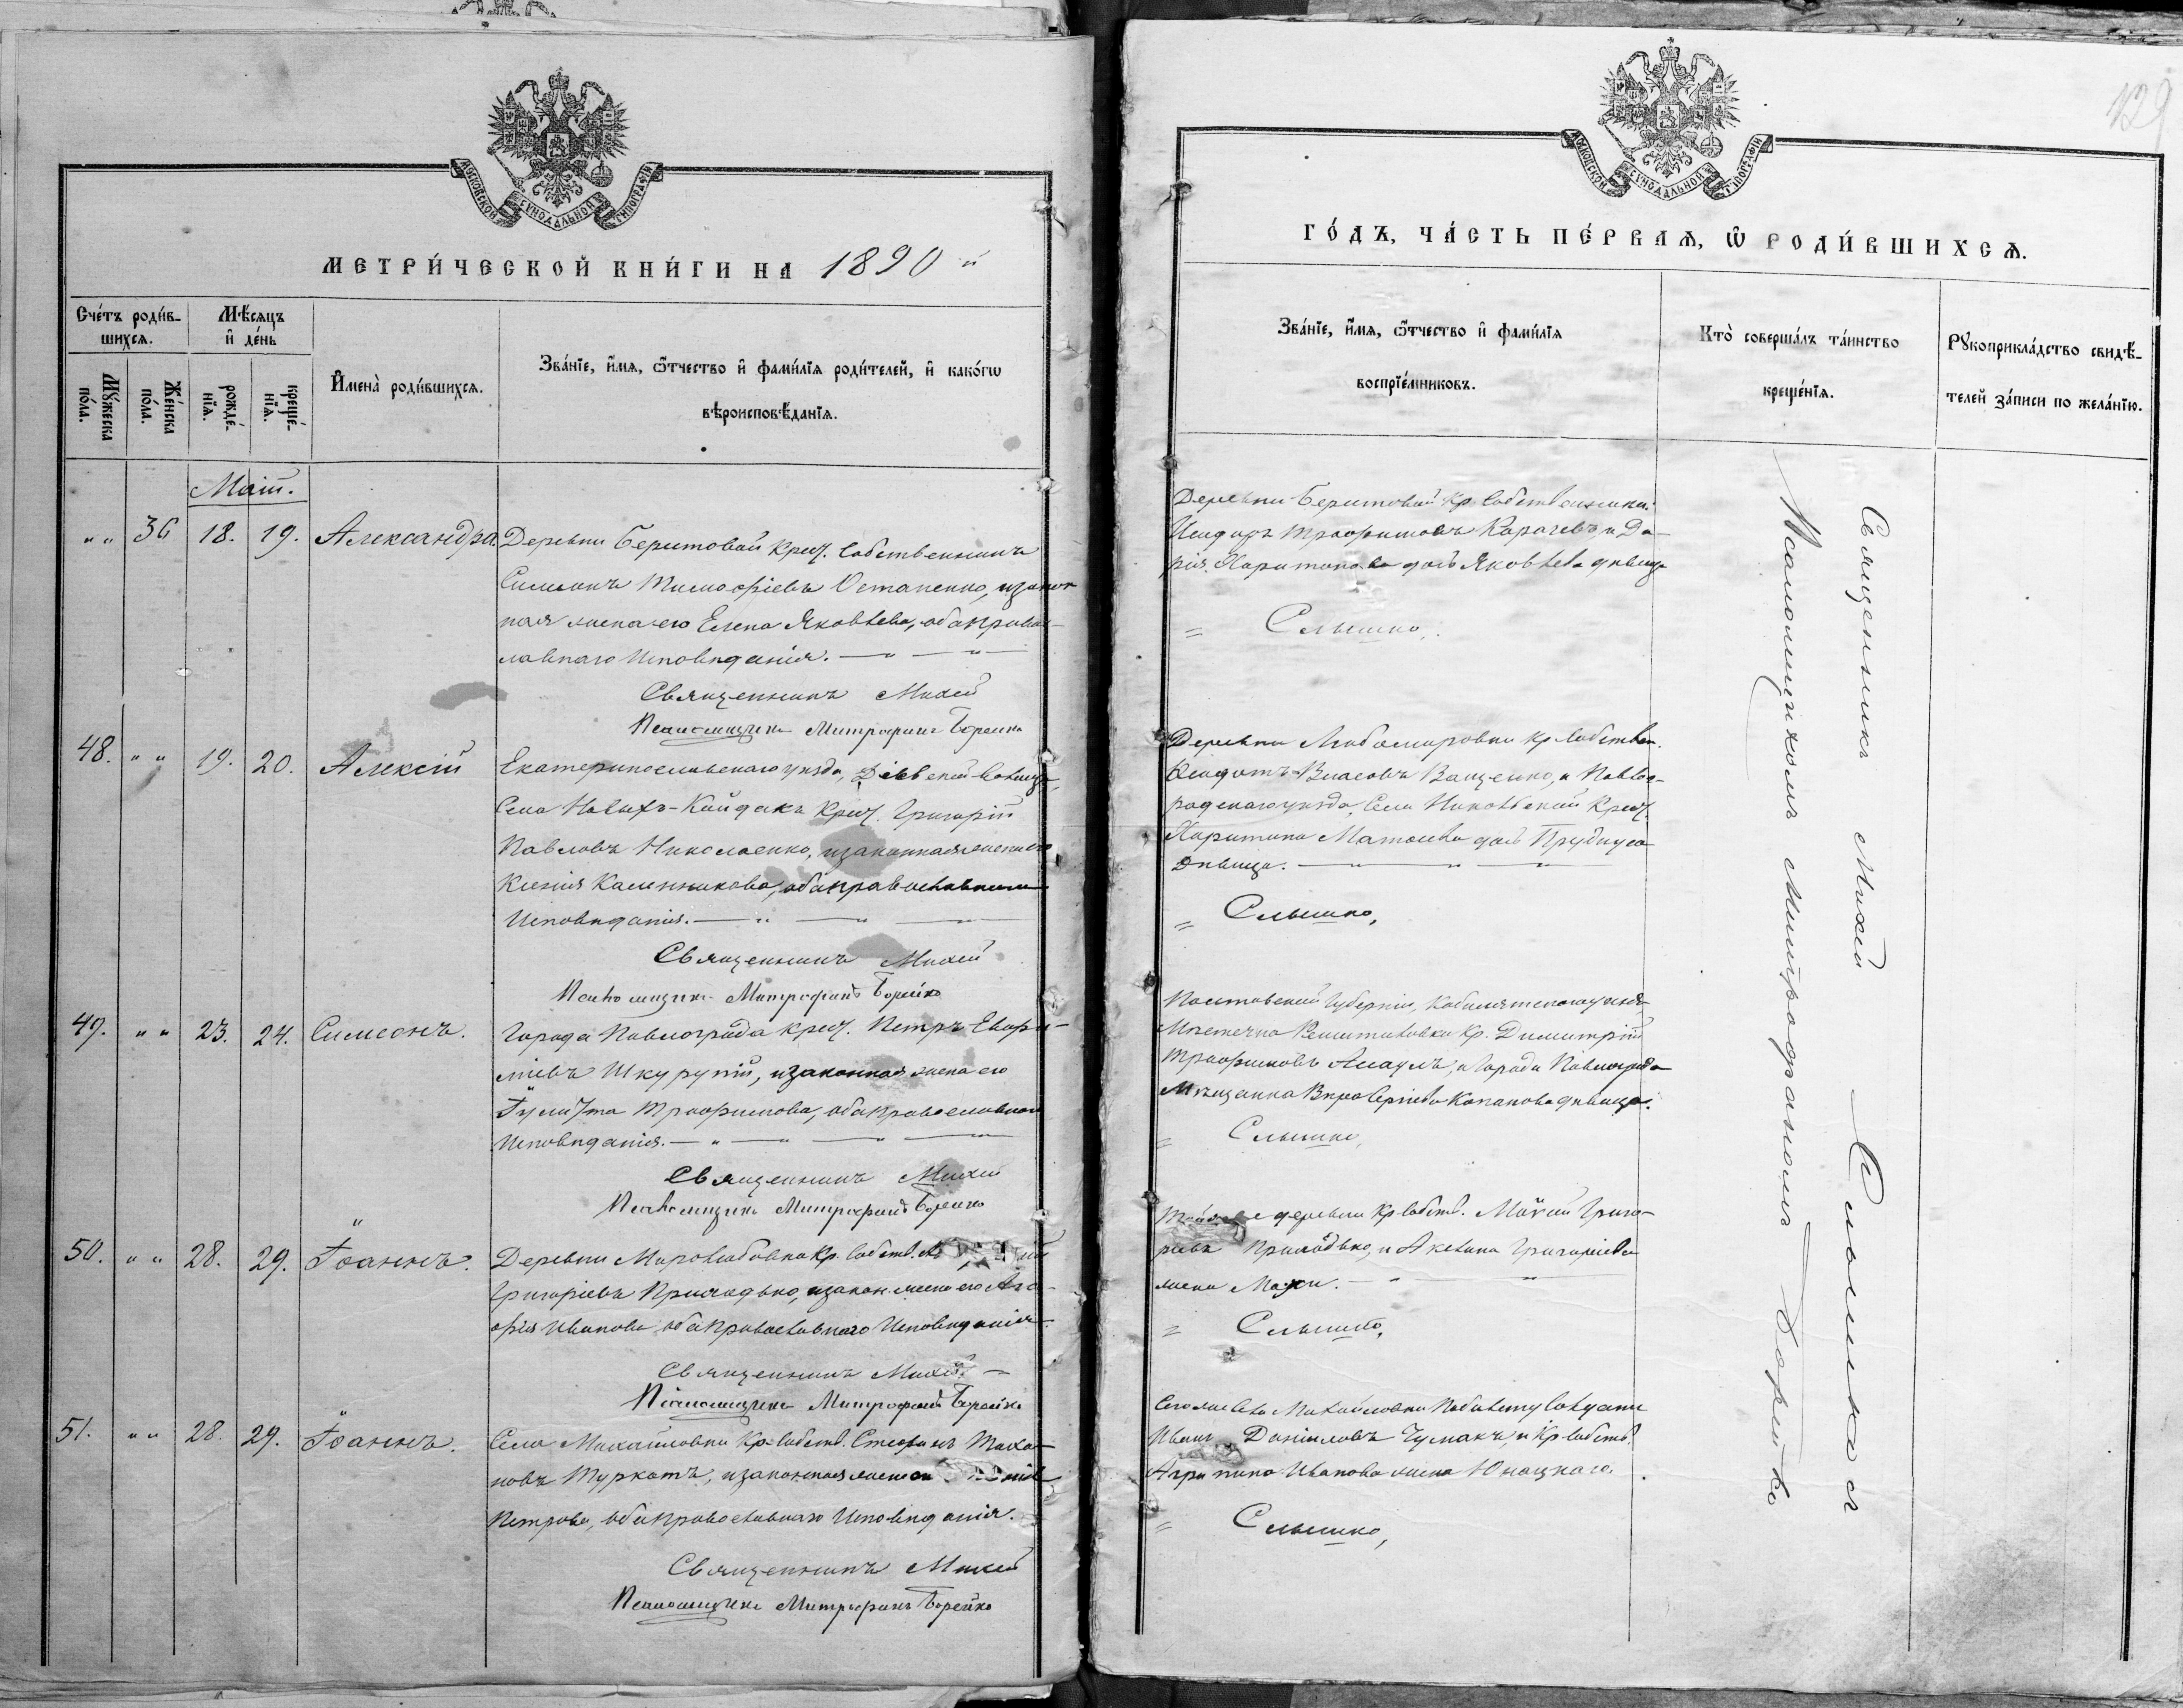 МОСКОВСКОЙ СѴНОДАЛЬНОЙ ТИПОГРАФІИ
МЕТРИ́ЧЕСКОЙ КНИ́ГИ НА 1890 й
Сче́тъ роди́в-
шихсѧ.
Мѣ́сѧцъ
и҆ де́нь
Мꙋ́жеска
по́ла.
Же́нска
по́ла.
рожде́-
нїѧ.
креще́-
нїѧ.
И҆мена̀ роди́вшихсѧ.
Зва́нїе, и҆́мѧ, ѻ҆́тчество и҆ фами́лїѧ роди́телей, и҆ како́гѡ
вѣроисповѣ́данїѧ.
Маій.
" " 36 18. 19. Александра
Деревни Беритовой крест. собственникъ
Симеонъ Тимофіевъ Остапенко, и закон
ная жена его Елена Яковлева, оба право-
славнаго исповѣданія.
Священникъ Михей
Псаломщикъ Митрофанъ Борейко
48. " " 19. 20. Алексій
Екатеринославскаго уѣзда, Діевской волости,
Села Новыхъ-Кайдакъ крест. Григорій
Павловъ Николаенко, и законная жена его
Ксенія Калинникова, оба православнаго
исповѣданія.
Священникъ Михей
Псаломщикъ Митрофанъ Борейко
49. " " 23. 24. Симеонъ.
Города Павлограда крест. Петръ Евфи-
міевъ Шкурупій, и законная жена его
Гулитта Трофимова, оба православнаго
исповѣданія.
Священникъ Михей
Псаломщикъ Митрофанъ Борейко
50. " " 28. 29. Іоаннъ.
Деревни Миролюбовки кр. собств.
Григоріевъ Примодько, и закон. жена его Ага-
фія Иванова, оба православнаго исповѣданія.
Священникъ Михей
Псаломщикъ Митрофанъ Борейко
51. " " 28. 29. Іоаннъ.
Села Михайловки кр. собств. Стефанъ
новъ Туркотъ, и законная жена
Петрова, оба православнаго исповѣданія.
Священникъ Михей
Псаломщикъ Митрофанъ Борейко
129
МОСКОВСКОЙ СѴНОДАЛЬНОЙ ТИПОГРАФІИ
ГО́ДЪ, ЧА́СТЬ ПЕ́РВАѦ, Ѡ҆ РОДИ́ВШИХСѦ.
Зва́нїе, и҆́мѧ, ѻ҆́тчество и҆ фами́лїѧ
воспрїе́мниковъ.
Кто̀ соверша́лъ та́инство
креще́нїѧ.
Рꙋкоприкла́дство свидѣ́-
телей за́писи по жела́нїю.
Деревни Беритовой кр. собственники:
Исидоръ Трофимовъ Карачевъ и Да-
рія Харитонова дочь Яковлева дѣвица
Слышко.
Деревни Любомировки кр. собствен.
Феодотъ Власовъ Ващенко, и Павло-
радскаго уѣзда, Села Николаевки крест.
Харитина Матвеева дочь
дѣвица.
Слышко,
Полтавской губерніи, Кобелякскаго уѣзда
Мѣстечка кр. Димитрій
Трофимовъ Асаулъ, и Города Павлограда
Мѣщанка Вѣра Сергіева Капанова дѣвица.
Слышко,
Той же деревни кр. собств. Моѵсій Григо-
ріевъ Примодько, и Акилина Григоріева
жена
Слышко,
Иванъ Даніиловъ Чумакъ, и кр. собств.
Агрипина Иванова жена Юнацкаго.
Слышко,
Священникъ Михей Слышко съ
Псаломщикомъ Митрофаномъ Борейко